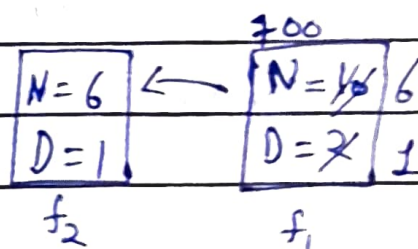 700
N = 6 ← N = 6
D = 1 D = 2 1
f₂ f₁